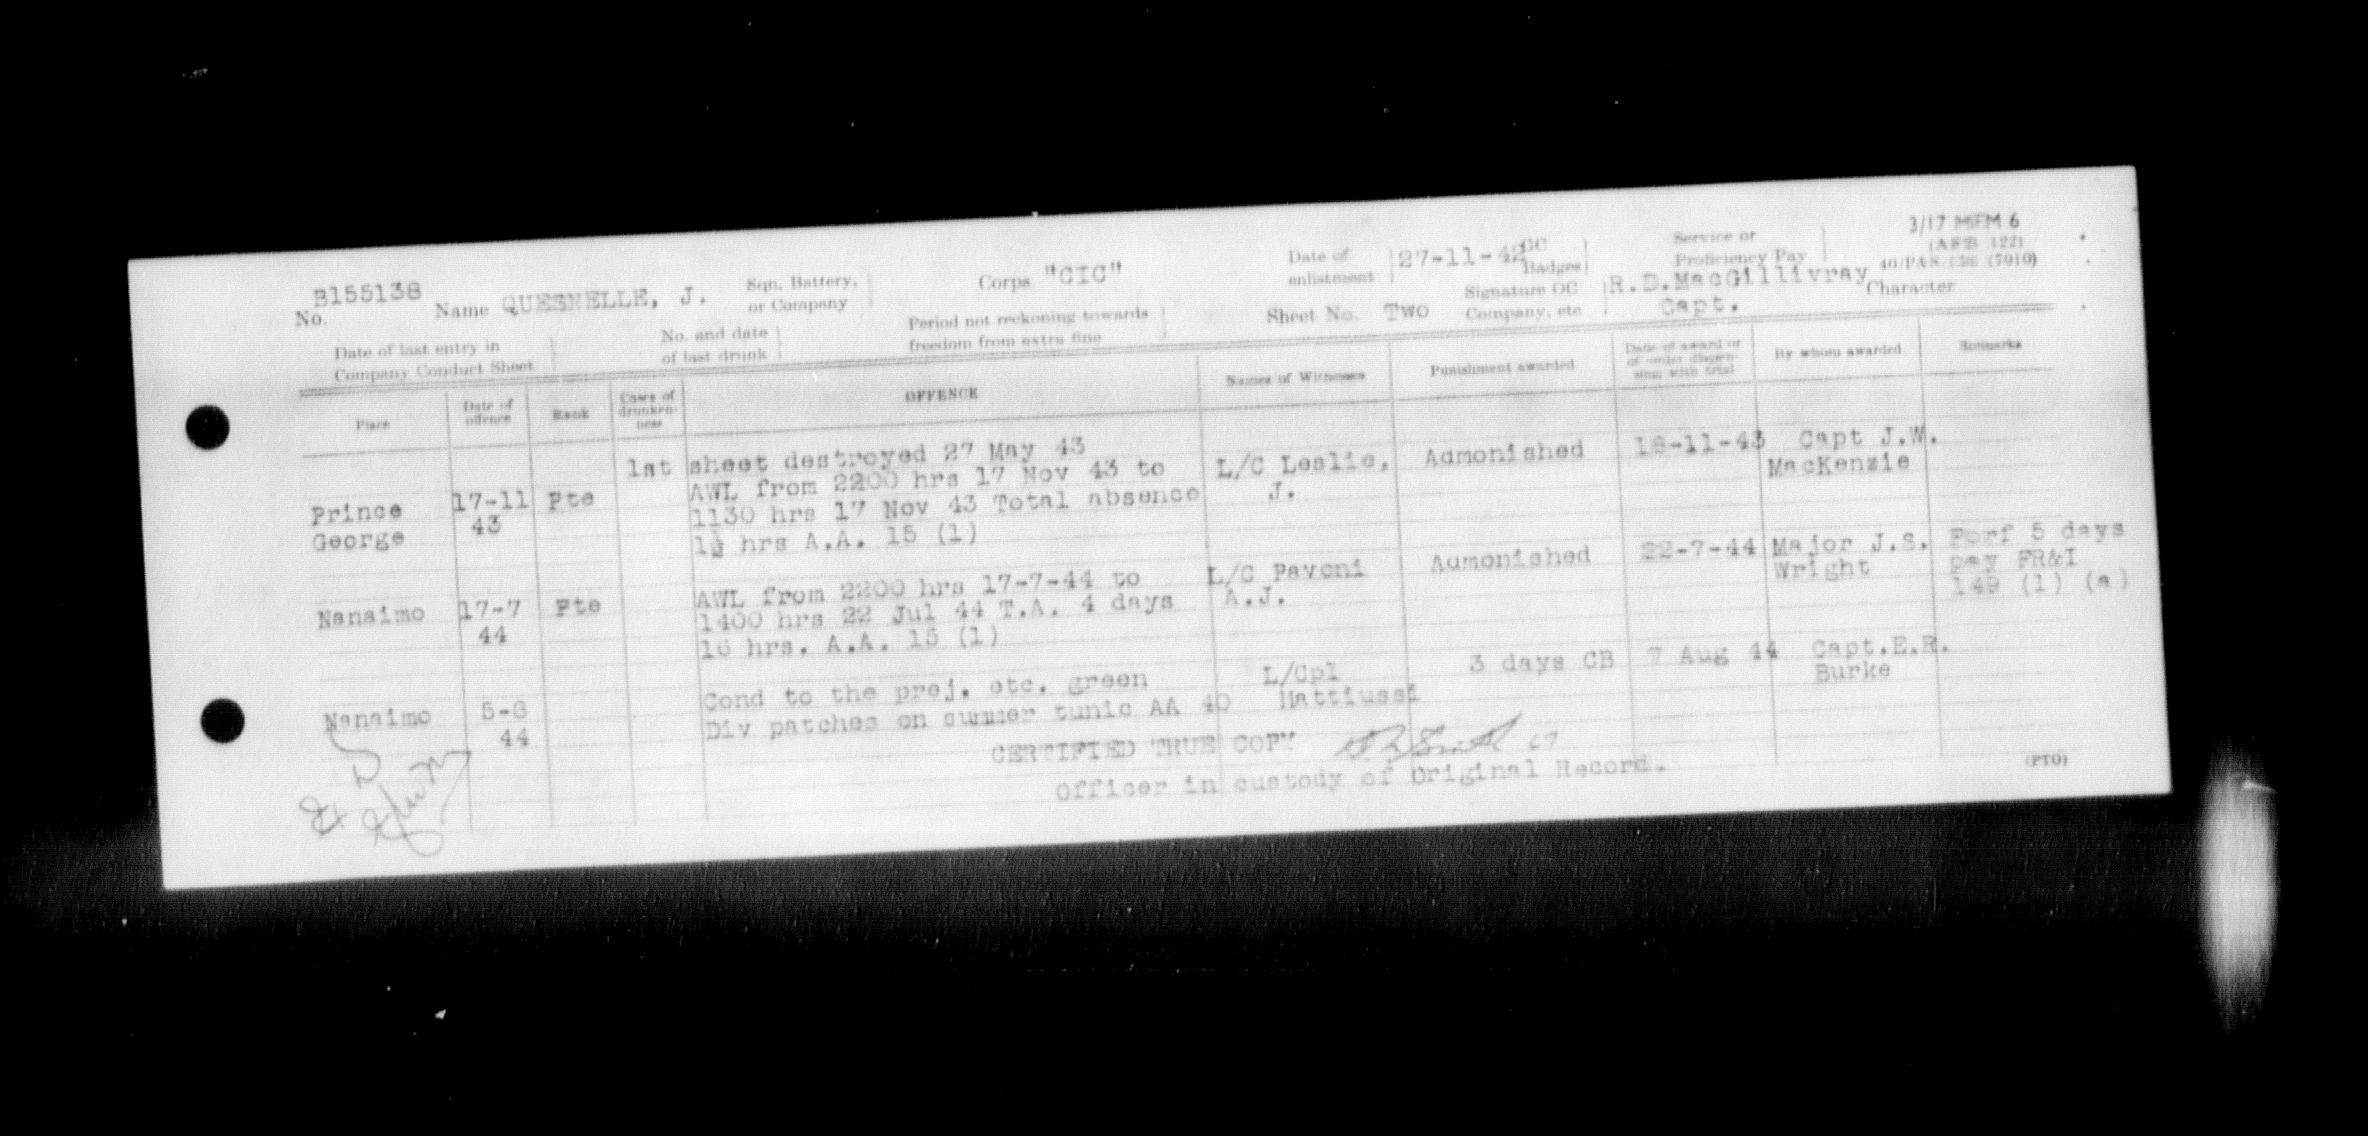 3/17 MFM 6
(AFB 122)
40/PAS/ (7010)
No. B155138 Name QUESNELLE, J. Sqn, Battery, or Company Corps "CIC" Date of enlistment 27-11-42 GC Badges Service or Proficiency Pay
Date of last entry in Company Conduct Sheet No. and date of last drunk Period not reckoning towards freedom from extra fine Sheet No. Two Signature OC Company, etc R.D.MacGillivray Capt. Character
Place Date of offence Rank Cases of drunkenness OFFENCE Names of Witnesses Punishment awarded Date of award or of order dispensing with trial By whom awarded Remarks
1st sheet destroyed 27 May 43
Prince George 17-11 43 Pte AWL from 2200 hrs 17 Nov 43 to L/C Leslie, J. Admonished 18-11-43 Capt J.W. MacKenzie
1130 hrs 17 Nov 43 Total absence
1½ hrs A.A. 15 (1)
Nanaimo 17-7 44 Pte AWL from 2200 hrs 17-7-44 to L/C Pavoni A.J. Admonished 22-7-44 Major J.S. Wright Forf 5 days pay FR&I 149 (1) (a)
1400 hrs 22 Jul 44 T.A. 4 days
16 hrs. A.A. 15 (1)
Nanaimo 5-8 44 Cond to the prej. etc. green L/Cpl Mattiussi 3 days CB 7 Aug 44 Capt.E.R. Burke
Div patches on summer tunic AA 40
CERTIFIED TRUE COPY
Officer in custody of Original Record.
(PTO)